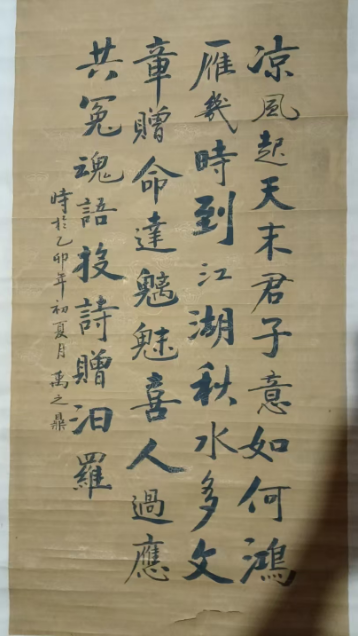 凉風起天末君子意如何鴻
雁幾時到江湖秋水多文
章贈命達魑魅喜人過應
共冤魂語投詩贈汨羅
時於乙卯年初夏月禹之鼎